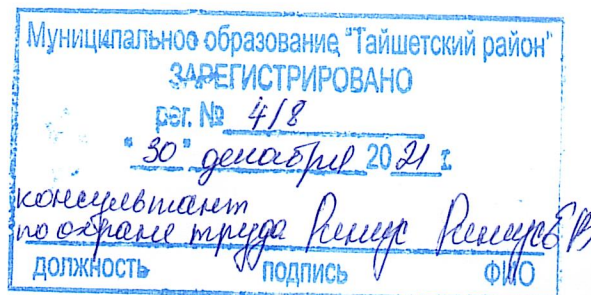 Муниципальное образование "Тайшетский район"
ЗАРЕГИСТРИРОВАНО
рег. № 418
"30" декабря 2021 г
консультант
по охране труда
должность подпись ФИО